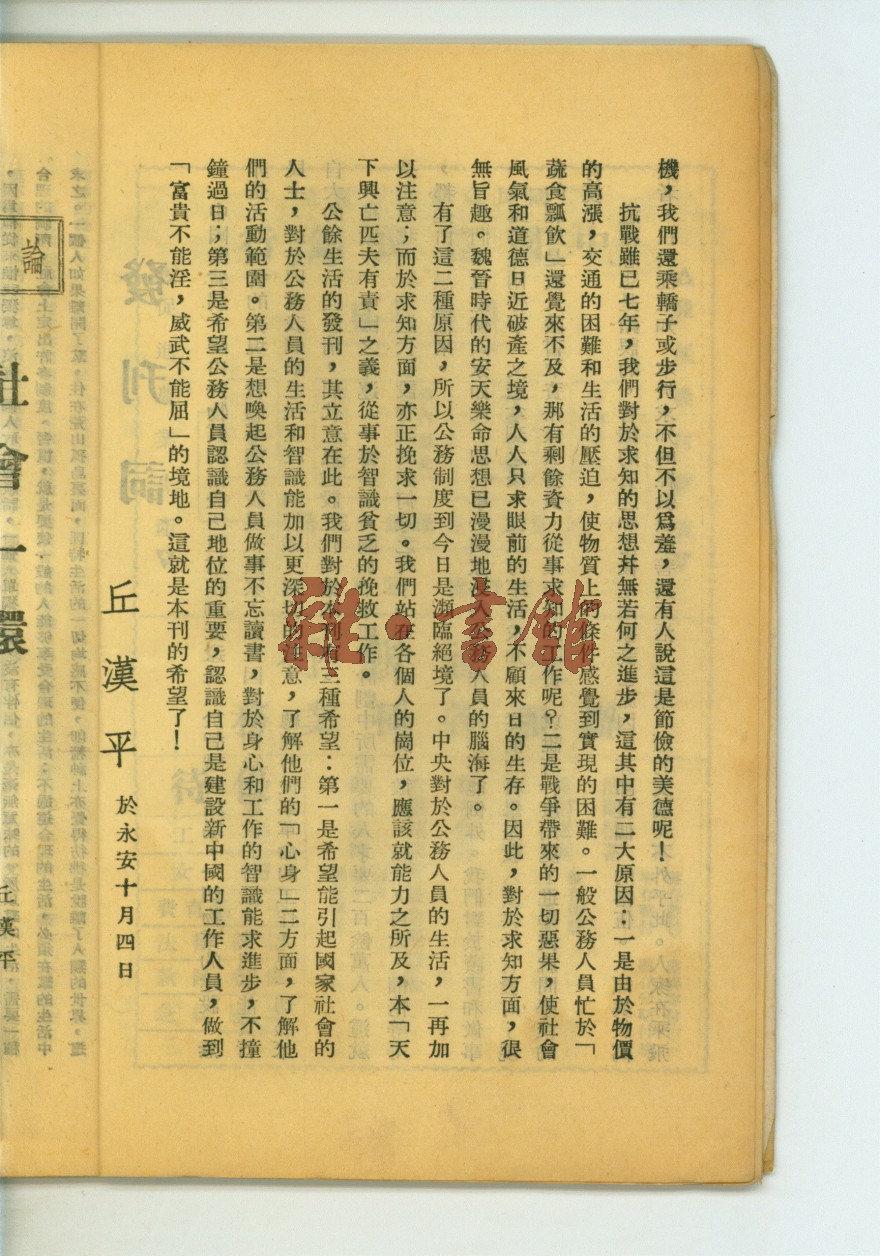 機，我們還乘轎子或步行，不但不以爲羞，還有人說這是節儉的美德呢！
抗戰雖已七年，我們對於求知的思想幷無若何之進步，這其中有二大原因：一是由於物價
的高漲，交通的困難和生活的壓迫，使物質上的條件感覺到實現的困難。一般公務人員忙於「
蔬食瓢飮」還覺來不及，那有剩餘資力從事求知的工作呢？二是戰爭帶來的一切惡果，使社會
風氣和道德日近破產之境，人人只求眼前的生活，不顧來日的生存。因此，對於求知方面，很
無旨趣。魏晉時代的安天樂命思想已漫漫地浸入公務人員的腦海了。
有了這二種原因，所以公務制度到今日是瀕臨絕境了。中央對於公務人員的生活，一再加
以注意；而於求知方面，亦正挽求一切。我們站在各個人的崗位，應該就能力之所及，本「天
下興亡匹夫有責」之義，從事於智識貧乏的挽救工作。
公餘生活的發刊，其立意在此。我們對於本刊有三種希望：第一是希望能引起國家社會的
人士，對於公務人員的生活和智識能加以更深切的注意，了解他們的「心身」二方面，了解他
們的活動範圍。第二是想喚起公務人員做事不忘讀書，對於身心和工作的智識能求進步，不撞
鐘過日；第三是希望公務人員認識自己地位的重要，認識自己是建設新中國的工作人員，做到
「富貴不能淫，威武不能屈」的境地。這就是本刊的希望了！
丘漢平 於永安十月四日
雜·書館
論
社會一環
丘漢平